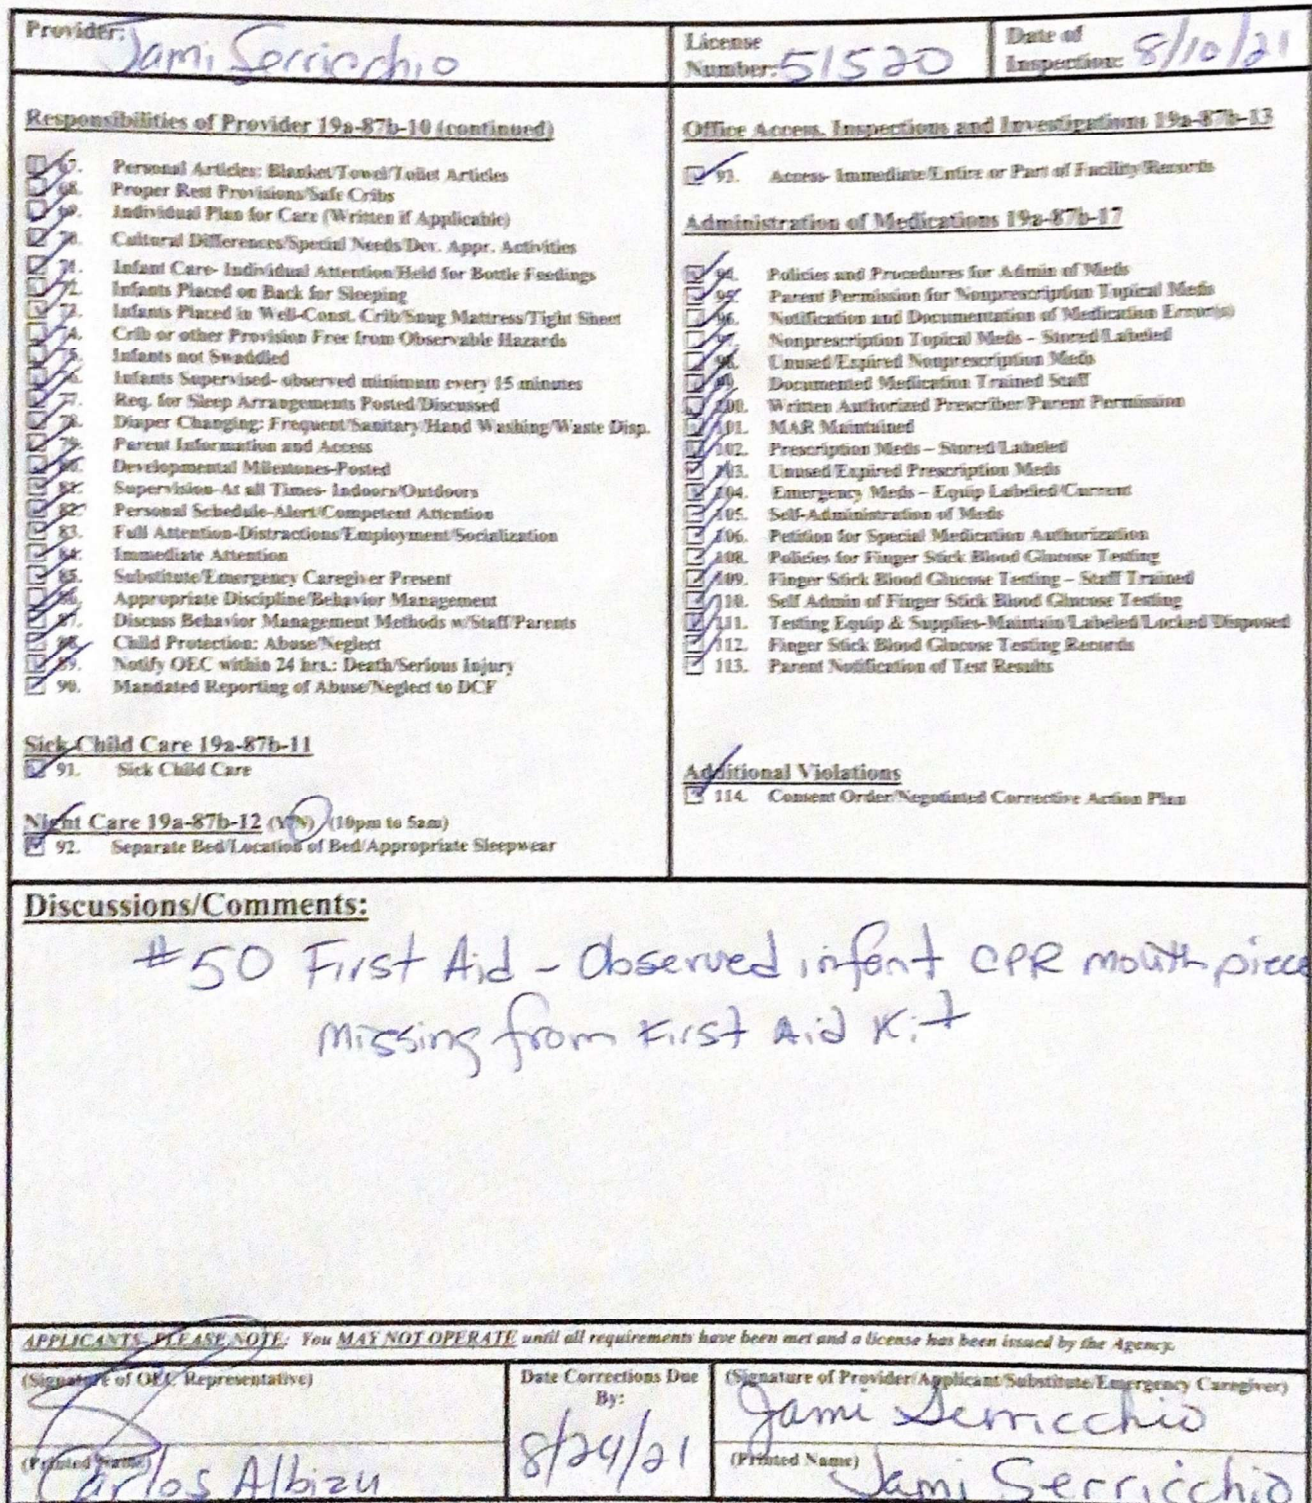 Provider: Jami Serricchio
License Number: 51520
Date of Inspection: 8/10/21
Responsibilities of Provider 19a-87b-10 (continued)
67. Personal Articles: Blanket/Towel/Toilet Articles
68. Proper Rest Provisions/Safe Cribs
69. Individual Plan for Care (Written if Applicable)
70. Cultural Differences/Special Needs/Dev. Appr. Activities
71. Infant Care- Individual Attention/Held for Bottle Feedings
72. Infants Placed on Back for Sleeping
73. Infants Placed in Well-Const. Crib/Snug Mattress/Tight Sheet
74. Crib or other Provision Free from Observable Hazards
75. Infants not Swaddled
76. Infants Supervised- observed minimum every 15 minutes
77. Req. for Sleep Arrangements Posted/Discussed
78. Diaper Changing: Frequent/Sanitary/Hand Washing/Waste Disp.
79. Parent Information and Access
80. Developmental Milestones-Posted
81. Supervision-At all Times- Indoors/Outdoors
82. Personal Schedule-Alert/Competent Attention
83. Full Attention-Distractions/Employment/Socialization
84. Immediate Attention
85. Substitute/Emergency Caregiver Present
86. Appropriate Discipline/Behavior Management
87. Discuss Behavior Management Methods w/Staff/Parents
88. Child Protection: Abuse/Neglect
89. Notify OEC within 24 hrs.: Death/Serious Injury
90. Mandated Reporting of Abuse/Neglect to DCF
Sick Child Care 19a-87b-11
91. Sick Child Care
Night Care 19a-87b-12 (Y/N) (10pm to 5am)
92. Separate Bed/Location of Bed/Appropriate Sleepwear
Office Access, Inspections and Investigations 19a-87b-13
93. Access- Immediate/Entire or Part of Facility/Records
Administration of Medications 19a-87b-17
94. Policies and Procedures for Admin of Meds
95. Parent Permission for Nonprescription Topical Meds
96. Notification and Documentation of Medication Error(s)
97. Nonprescription Topical Meds – Stored/Labeled
98. Unused/Expired Nonprescription Meds
99. Documented Medication Trained Staff
100. Written Authorized Prescriber/Parent Permission
101. MAR Maintained
102. Prescription Meds – Stored/Labeled
103. Unused/Expired Prescription Meds
104. Emergency Meds – Equip Labeled/Current
105. Self-Administration of Meds
106. Petition for Special Medication Authorization
108. Policies for Finger Stick Blood Glucose Testing
109. Finger Stick Blood Glucose Testing – Staff Trained
110. Self Admin of Finger Stick Blood Glucose Testing
111. Testing Equip & Supplies-Maintain/Labeled/Locked/Disposed
112. Finger Stick Blood Glucose Testing Records
113. Parent Notification of Test Results
Additional Violations
114. Consent Order/Negotiated Corrective Action Plan
Discussions/Comments:
#50 First Aid - Observed infant CPR mouth piece
missing from First Aid Kit
APPLICANTS- PLEASE NOTE: You MAY NOT OPERATE until all requirements have been met and a license has been issued by the Agency.
(Signature of OEC Representative)
(Printed Name) Carlos Albizu
Date Corrections Due By:
8/24/21
(Signature of Provider/Applicant/Substitute/Emergency Caregiver)
Jami Serricchio
(Printed Name) Jami Serricchio